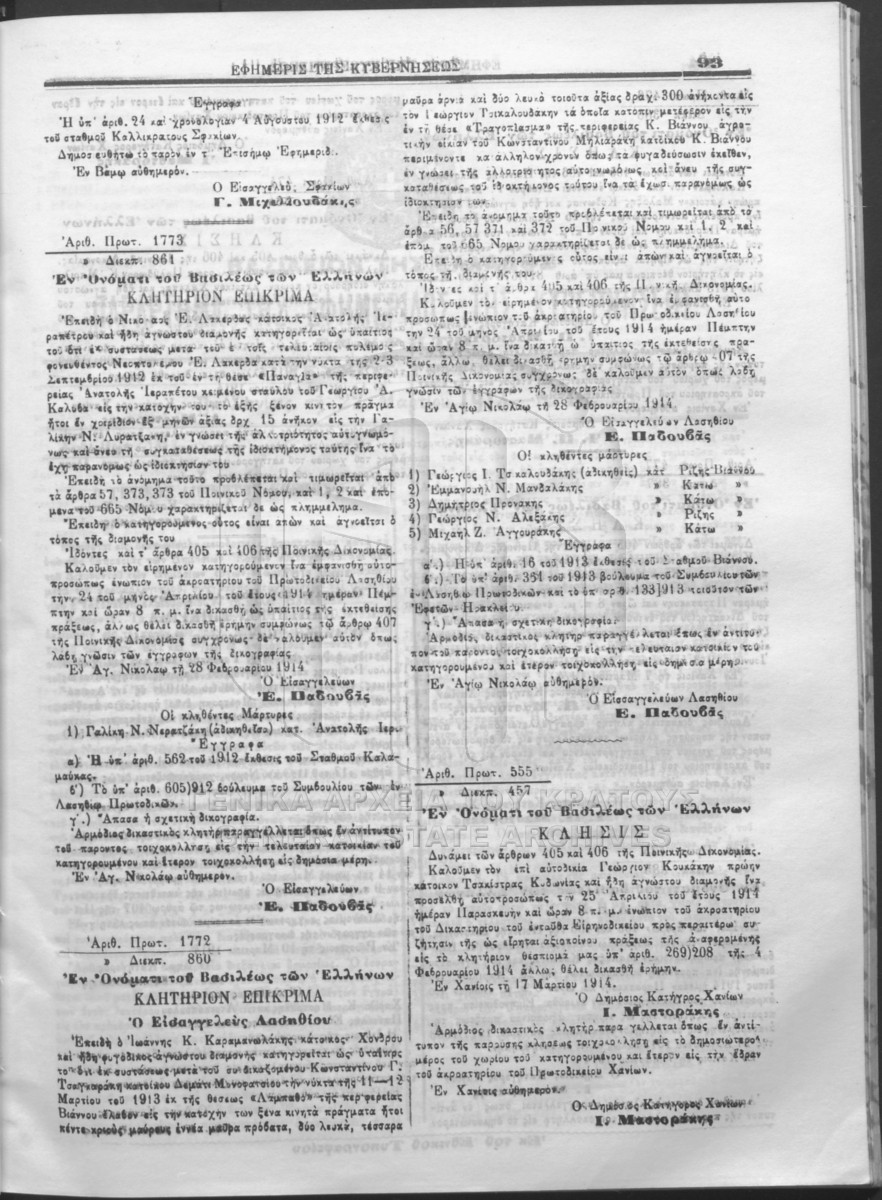 ΕΦΗΜΕΡΙΣ ΤΗΣ ΚΥΒΕΡΝΗΣΕΩΣ
93
Έγγραφα
Ἡ ὑπ' ἀριθ. 24 καὶ χρονολογίαν 4 Αὐγούστου 1912 ἔκθεσις
τοῦ σταθμοῦ Καλλικράτους Σφακίων.
Δημοσιευθήτω τὸ παρὸν ἐν τ Ἐπισήμῳ Ἐφημερίδ.
Ἐν Βάμῳ αὐθημερόν.
Ὁ Εἰσαγγελεὺς Σφακίων
Γ. Μιχελιουδάκης
Ἀριθ. Πρωτ. 1773
» Διεκπ. 861
Ἐν Ὀνόματι τοῦ Βασιλέως τῶν Ἑλλήνων
ΚΛΗΤΗΡΙΟΝ ΕΠΙΚΡΙΜΑ
Ἐπειδὴ ὁ Νικόλαος Ε. Λακέρδας κάτοικος Ἀνατολῆς Ἱε-
ραπέτρου καὶ ἤδη ἀγνώστου διαμονῆς κατηγορεῖται ὡς ὑπαίτιος
τοῦ ὅτι ἐκ συστάσεως μετὰ τοῦ ἐν τοῖς τελευταίοις πολέμοις
φονευθέντος Νεοπτολέμου Ε. Λακέρδα κατὰ τὴν νύκτα τῆς 2-3
Σεπτεμβρίου 1912 ἐκ τοῦ ἐν τῇ θέσει «Παναγία» τῆς περιφε-
ρείας Ἀνατολῆς Ἱεραπέτου κειμένου σταύλου τοῦ Γεωργίου Δ.
Καλύβα εἰς τὴν κατοχήν του τὸ ἑξῆς ξένον κινητὸν πρᾶγμα
ἤτοι ἓν χοιρίδιον ἓξ μηνῶν ἀξίας δρχ 15 ἀνῆκον εἰς τὴν Γα-
λίκην Ν. Λυρατζάκη, ἐν γνώσει τῆς ἀλλοτριότητος αὐτογνωμό-
νως καὶ ἄνευ τῆς συγκαταθέσεως τῆς ἰδιοκτήμονος ταύτης ἵνα τὸ
ἔχῃ παρανόμως ὡς ἰδιοκτησίαν του
Ἐπειδὴ τὸ ἀνόμημα τοῦτο προβλέπεται καὶ τιμωρεῖται ἀπὸ
τὰ ἄρθρα 57, 373, 373 τοῦ Ποινικοῦ Νόμου, καὶ 1, 2 καὶ ἑπό-
μενα τοῦ 665 Νόμου χαρακτηρίζεται δὲ ὡς πλημμέλημα.
Ἐπειδὴ ὁ κατηγορούμενος οὗτος εἶναι ἀπὼν καὶ ἀγνοεῖται ὁ
τόπος τῆς διαμονῆς του
Ἰδόντες καὶ τ' ἄρθρα 405 καὶ 406 τῆς Ποινικῆς Δικονομίας.
Καλοῦμεν τὸν εἰρημένον κατηγορούμενον ἵνα ἐμφανισθῇ αὐτο-
προσώπως ἐνώπιον τοῦ ἀκροατηρίου τοῦ Πρωτοδικείου Λασηθίου
τὴν 24 τοῦ μηνὸς Ἀπριλίου τοῦ ἔτους 1914 ἡμέραν Πέμ-
πτην καὶ ὥραν 8 π. μ. ἵνα δικασθῇ ὡς ὑπαίτιος τῆς ἐκτεθείσης
πράξεως, ἄλλως θέλει δικασθῆ ἐρήμην συμφώνως τῷ ἄρθρῳ 407
τῆς Ποινικῆς Δικονομίας συγχρόνως δὲ καλοῦμεν αὐτὸν ὅπως
λάβῃ γνῶσιν τῶν ἐγγράφων τῆς δικογραφίας
Ἐν Ἁγ. Νικολάῳ τῇ 28 Φεβρουαρίου 1914
Ὁ Εἰσαγγελεύων
Ἐ. Παδουβᾶς
Οἱ κληθέντες Μάρτυρες
1) Γαλίκη Ν. Νερατζάκη (ἀδικηθεῖσα) κατ. Ἀνατολῆς Ἱερ.
Ἔγγραφα
α) Ἡ ὑπ' ἀριθ. 562 τοῦ 1912 ἔκθεσις τοῦ Σταθμοῦ Καλα-
μαύκας.
β') Τὸ ὑπ' ἀριθ. 605)912 βούλευμα τοῦ Συμβουλίου τῶν ἐν
Λασηθίῳ Πρωτοδικῶν.
γ'.) Ἅπασα ἡ σχετικὴ δικογραφία.
Ἁρμόδιος δικαστικὸς κλητὴρ παραγγέλλεται ὅπως ἓν ἀντίτυπον
τοῦ παρόντος τοιχοκολλήσῃ εἰς τὴν τελευταίαν κατοικίαν τοῦ
κατηγορουμένου καὶ ἕτερον τοιχοκολλήσῃ εἰς δημόσια μέρη.
Ἐν Ἁγ. Νικολάῳ αὐθημερόν.
Ὁ Εἰσαγγελεύων
Ἐ. Παδουβᾶς
Ἀριθ. Πρωτ. 1772
» Διεκπ. 860
Ἐν Ὀνόματι τοῦ Βασιλέως τῶν Ἑλλήνων
ΚΛΗΤΗΡΙΟΝ ΕΠΙΚΡΙΜΑ
Ὁ Εἰσαγγελεὺς Λασηθίου
Ἐπειδὴ ὁ Ἰωάννης Κ. Καραμανωλάκης κάτοικος Χόνδρου
καὶ ἤδη φυγόδικος ἀγνώστου διαμονῆς κατηγορεῖται ὡς ὑπαίτιος
τοῦ ὅτι ἐκ συστάσεως μετὰ τοῦ συνδικαζομένου Κωνσταντίνου Γ.
Τσαγκαράκη κατοίκου Δεμάτι Μονοφατσίου τὴν νύκτα τῆς 11—12
Μαρτίου τοῦ 1913 ἐκ τῆς θέσεως «Λάμπαθο» τῆς περιφερείας
Βιάννου ἔλαβον εἰς τὴν κατοχήν των ξένα κινητὰ πράγματα ἤτοι
πέντε κριοὺς μαύρους ἐννέα μαῦρα πρόβατα, δύο λευκά, τέσσαρα
μαῦρα ἀρνιὰ καὶ δύο λευκὰ τοιαῦτα ἀξίας δραχ. 300 ἀνήκοντα εἰς
τὸν Γεώργιον Τσικαλουδάκην τὰ ὁποῖα κατόπιν μετέφερον εἰς τὴν
ἐν τῇ θέσει «Τραγοπίασμα» τῆς περιφερείας Κ. Βιάννου ἀγρο-
τικὴν οἰκίαν τοῦ Κωνσταντίνου Μηλιαράκη κατοίκου Κ. Βιάννου
περιμένοντες κατάλληλον χρόνον ὅπως τὰ φυγαδεύσωσιν ἐκεῖθεν,
ἐν γνώσει τῆς ἀλλοτριότητος αὐτογνωμόνως καὶ ἄνευ τῆς συγ-
καταθέσεως τοῦ ἰδιοκτήμονος τούτου ἵνα τὰ ἔχωσι παρανόμως ὡς
ἰδιοκτησίαν των.
Ἐπειδὴ τὸ ἀνόμημα τοῦτο προβλέπεται καὶ τιμωρεῖται ἀπὸ τὰ
ἄρθρα 56, 57 371 καὶ 372 τοῦ Ποινικοῦ Νόμου καὶ 1, 2 καὶ
ἑπομ. τοῦ 665 Νόμου χαρακτηρίζεται δὲ ὡς πλημμέλημα.
Ἐπειδὴ ὁ κατηγορούμενος οὗτος εἶναι ἀπὼν καὶ ἀγνοεῖται ὁ
τόπος τῆς διαμονῆς του
Ἰδόντες καὶ τ' ἄρθρα 405 καὶ 406 τῆς Ποινικῆς Δικονομίας.
Καλοῦμεν τὸν εἰρημένον κατηγορούμενον ἵνα ἐμφανισθῇ αὐτο
προσώπως ἐνώπιον τοῦ ἀκροατηρίου τοῦ Πρωτοδικείου Λασηθίου
τὴν 24 τοῦ μηνὸς Ἀπριλίου τοῦ ἔτους 1914 ἡμέραν Πέμπτην
καὶ ὥραν 8 π. μ. ἵνα δικασθῇ ὡς ὑπαίτιος τῆς ἐκτεθείσης πρά-
ξεως, ἄλλως θέλει δικασθῆ ἐρήμην συμφώνως τῷ ἄρθρῳ 407 τῆς
Ποινικῆς Δικονομίας συγχρόνως δὲ καλοῦμεν αὐτὸν ὅπως λάβῃ
γνῶσιν τῶν ἐγγράφων τῆς δικογραφίας
Ἐν Ἁγίῳ Νικολάῳ τῇ 28 Φεβρουαρίου 1914
Ὁ Εἰσαγγελεύων Λασηθίου
Ε. Παδουβᾶς
Οἱ κληθέντες μάρτυρες
1) Γεώργιος Ι. Τσικαλουδάκης (ἀδικηθεὶς) κάτ Ρίζης Βιάννου
2) Ἐμμανουὴλ Ν. Μανδαλάκης » Κάτω »
3) Δημήτριος Προνάκης » Κάτω »
4) Γεώργιος Ν. Ἀλεξάκης » Ρίζης »
5) Μιχαὴλ Ζ. Ἀγγουράκης » Κάτω »
Ἔγγραφα
α'.) Ἡ ὑπ' ἀριθ. 16 τοῦ 1913 ἔκθεσις τοῦ Σταθμοῦ Βιάννου.
β'.) Τὸ ὑπ' ἀριθ. 351 τοῦ 1913 βούλευμα τοῦ Συμβουλίου τῶν
ἐν Λασηθίῳ Πρωτοδικῶν καὶ τὸ ὑπ' ἀριθ. 133)913 τοιοῦτον τῶν
Ἐφετῶν Ἡρακλείου.
γ'.) Ἅπασα ἡ σχετικὴ δικογραφία.
Ἁρμόδιος δικαστικὸς κλητὴρ παραγγέλλεται ὅπως ἓν ἀντίτυ-
πον τοῦ παρόντος τοιχοκολλήσῃ εἰς τὴν τελευταίαν κατοικίαν τοῦ
κατηγορουμένου καὶ ἕτερον τοιχοκολλήσῃ εἰς δημόσια μέρη.
Ἐν Ἁγίῳ Νικολάῳ αὐθημερόν.
Ὁ Εἰσσαγγελεύων Λασηθίου
Ε. Παδουβᾶς
Ἀριθ. Πρωτ. 555
» Διεκπ. 457
Ἐν Ὀνόματι τοῦ Βασιλέως τῶν Ἑλλήνων
ΚΛΗΣΙΣ
Δυνάμει τῶν ἄρθρων 405 καὶ 406 τῆς Ποινικῆς Δικονομίας.
Καλοῦμεν τὸν ἐπὶ αὐτοδικίᾳ Γεώργιον Κουκάκην πρώην
κάτοικον Τσακίστρας Κυδωνίας καὶ ἤδη ἀγνώστου διαμονῆς ἵνα
προσέλθῃ αὐτοπροσώπως τὴν 25 Ἀπριλίου τοῦ ἔτους 1914
ἡμέραν Παρασκευὴν καὶ ὥραν 8 π. μ. ἐνώπιον τοῦ ἀκροατηρίου
τοῦ Δικαστηρίου τοῦ ἐνταῦθα Εἰρηνοδικείου πρὸς περαιτέρω συ
ζήτησιν τῆς ὡς εἴρηται ἀξιοποίνου πράξεως τῆς ἀναφερομένης
εἰς τὸ κλητήριον θέσπισμά μας ὑπ' ἀριθ. 269)208 τῆς 4
Φεβρουαρίου 1914 ἄλλως θέλει δικασθῆ ἐρήμην.
Ἐν Χανίοις τῇ 17 Μαρτίου 1914.
Ὁ Δημόσιος Κατήγρος Χανίων
Ι. Μαστοράκης
Ἁρμόδιος δικαστικὸς κλητὴρ παραγγέλλεται ὅπως ἓν ἀντί-
τυπον τῆς παρούσης κλήσεως τοιχοκολλήσῃ εἰς τὸ δημοσιώτερον
μέρος τοῦ χωρίου τοῦ κατηγορουμένου καὶ ἕτερον εἰς τὴν ἕδραν
τοῦ ἀκροατηρίου τοῦ Πρωτοδικείου Χανίων.
Ἐν Χανίοις αὐθημερόν.
Ὁ Δημόσιος Κατήγορος Χανίων
Ι. Μαστοράκης
ΓΕΝΙΚΑ ΑΡΧΕΙΑ ΤΟΥ ΚΡΑΤΟΥΣ
STATE ARCHIVES